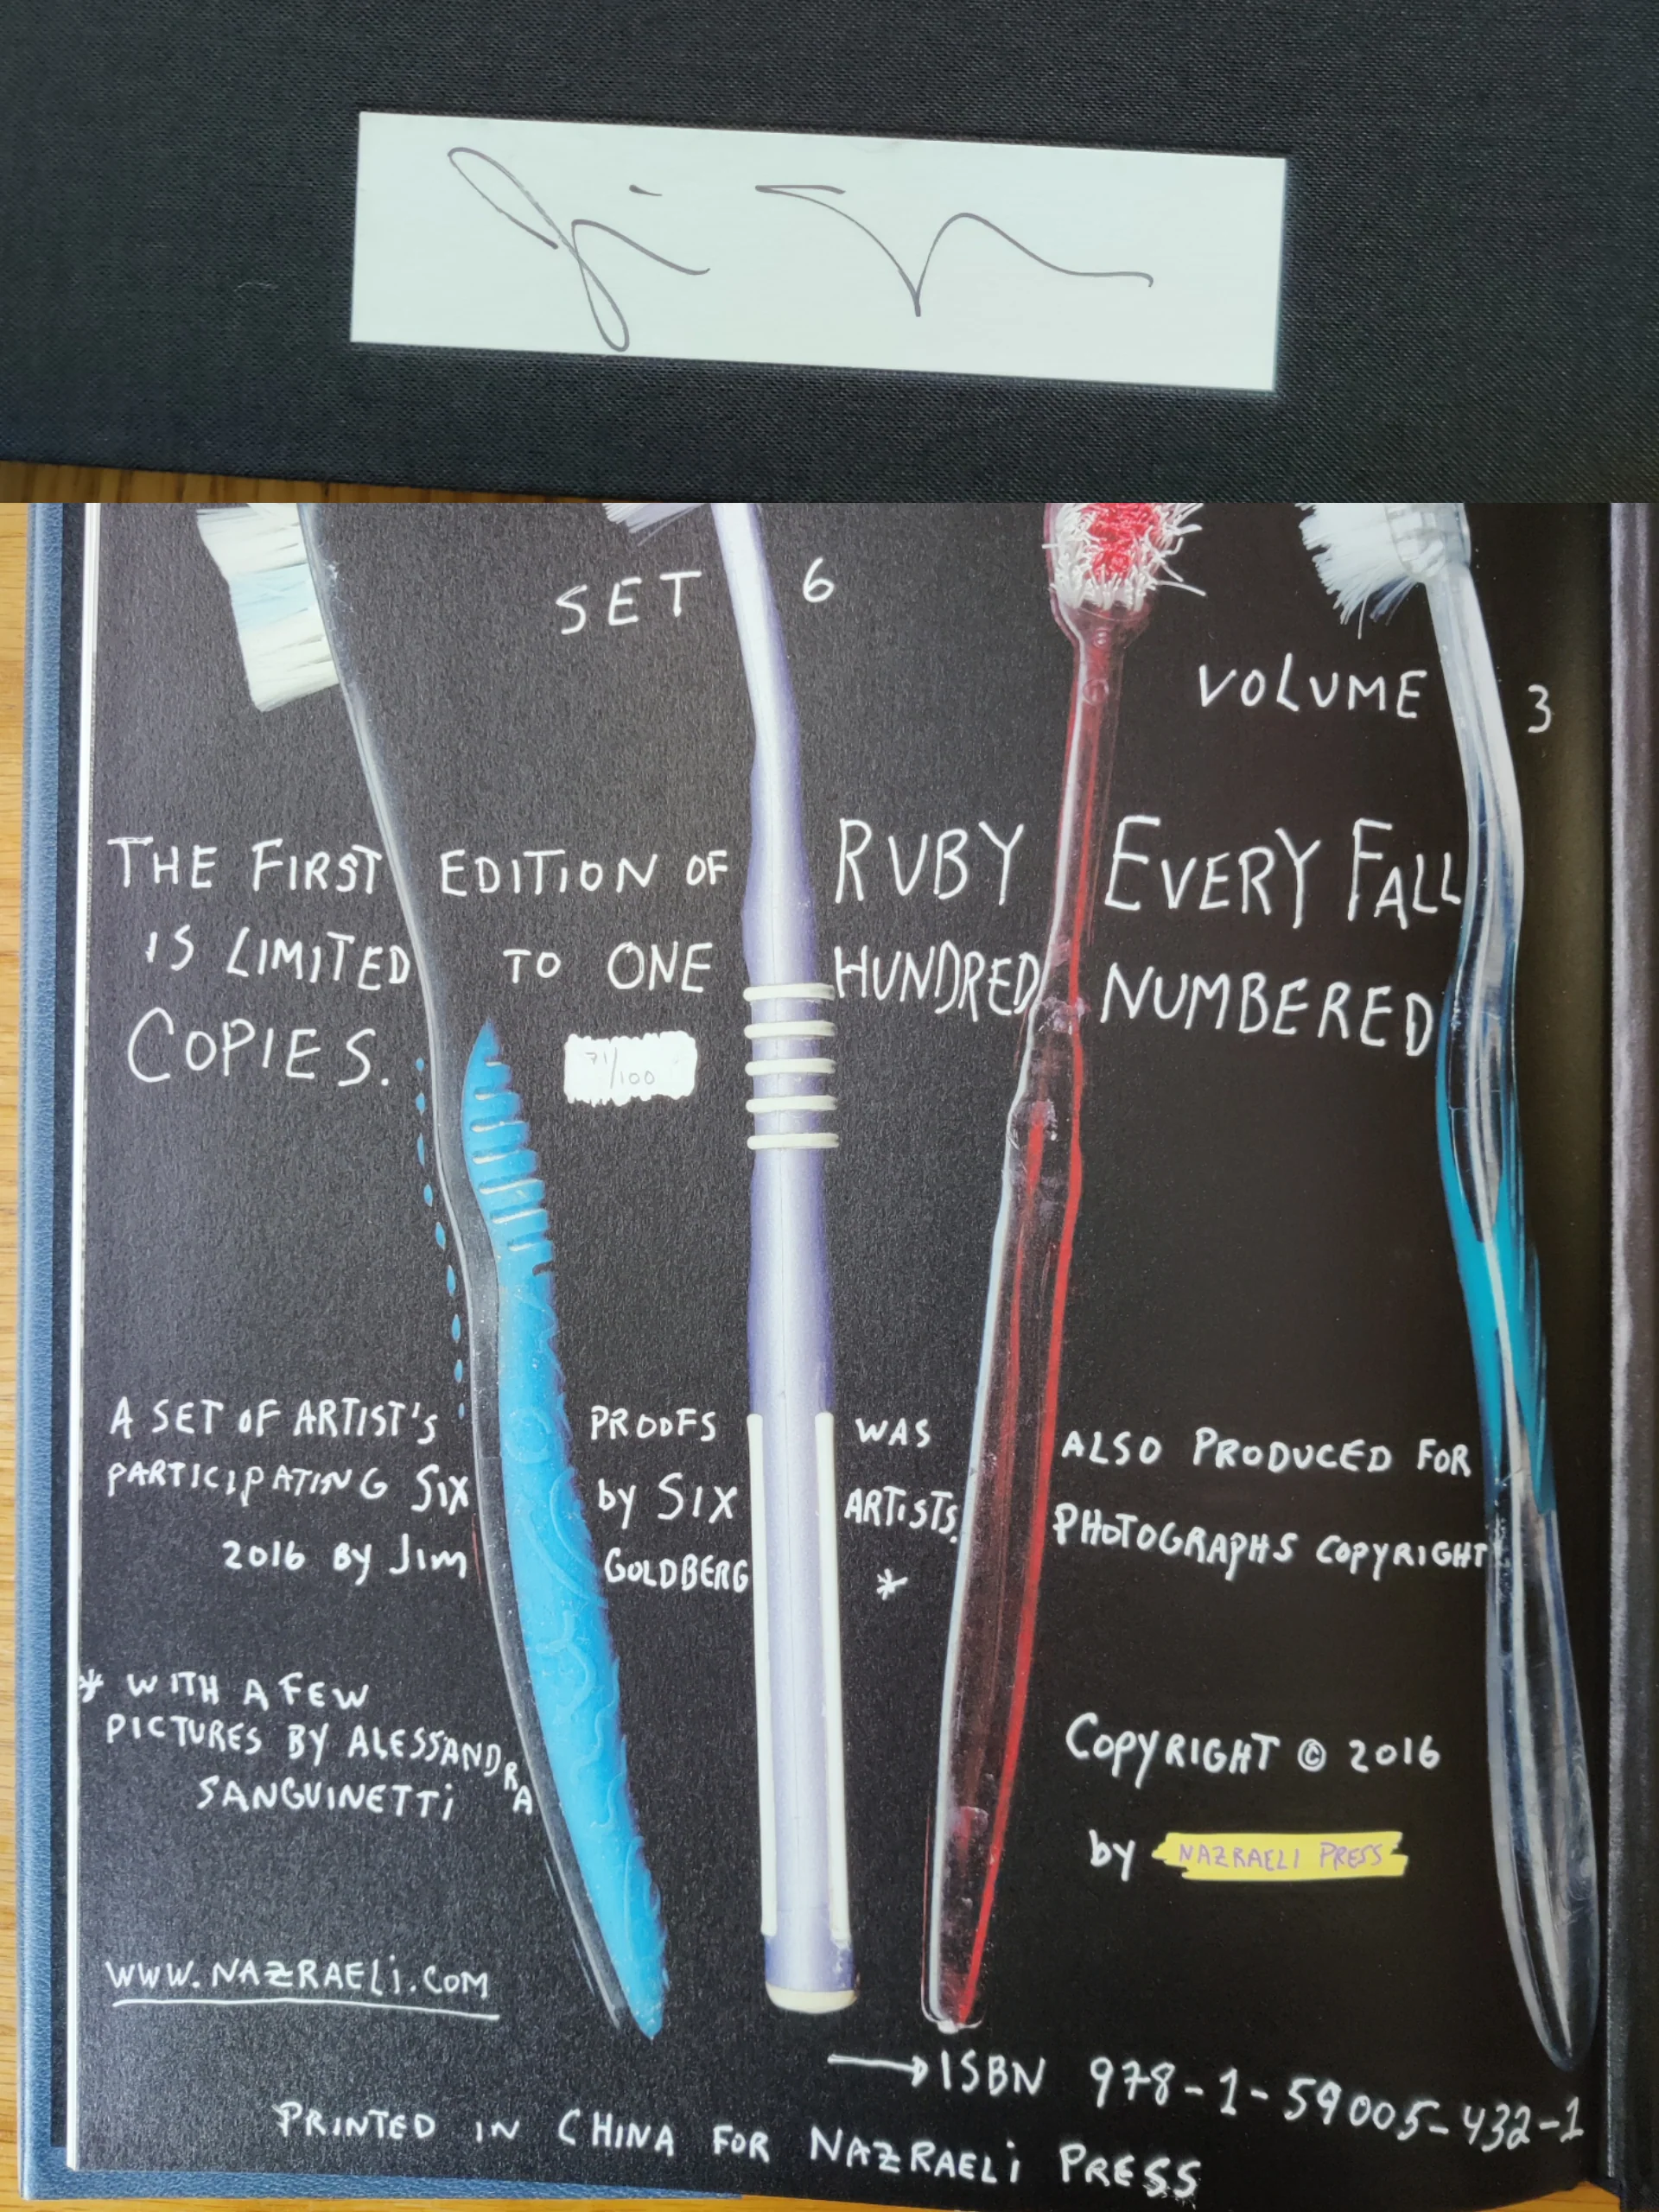 SET 6
VOLUME 3
THE FIRST EDITION OF RUBY EVERY FALL
IS LIMITED TO ONE HUNDRED NUMBERED
COPIES. 71/100
A SET OF ARTIST'S PROOFS WAS ALSO PRODUCED FOR
PARTICIPATING SIX by SIX ARTISTS. PHOTOGRAPHS COPYRIGHT
2016 BY JiM GOLDBERG *
* WITH A FEW
PICTURES BY ALESSANDRA
SANGUINETTi
COPYRIGHT © 2016
by NAZRAELI PRESS
WWW.NAZRAELi.COM
ISBN 978-1-59005-432-1
PRINTED IN CHINA FOR NAZRAELi PRESS